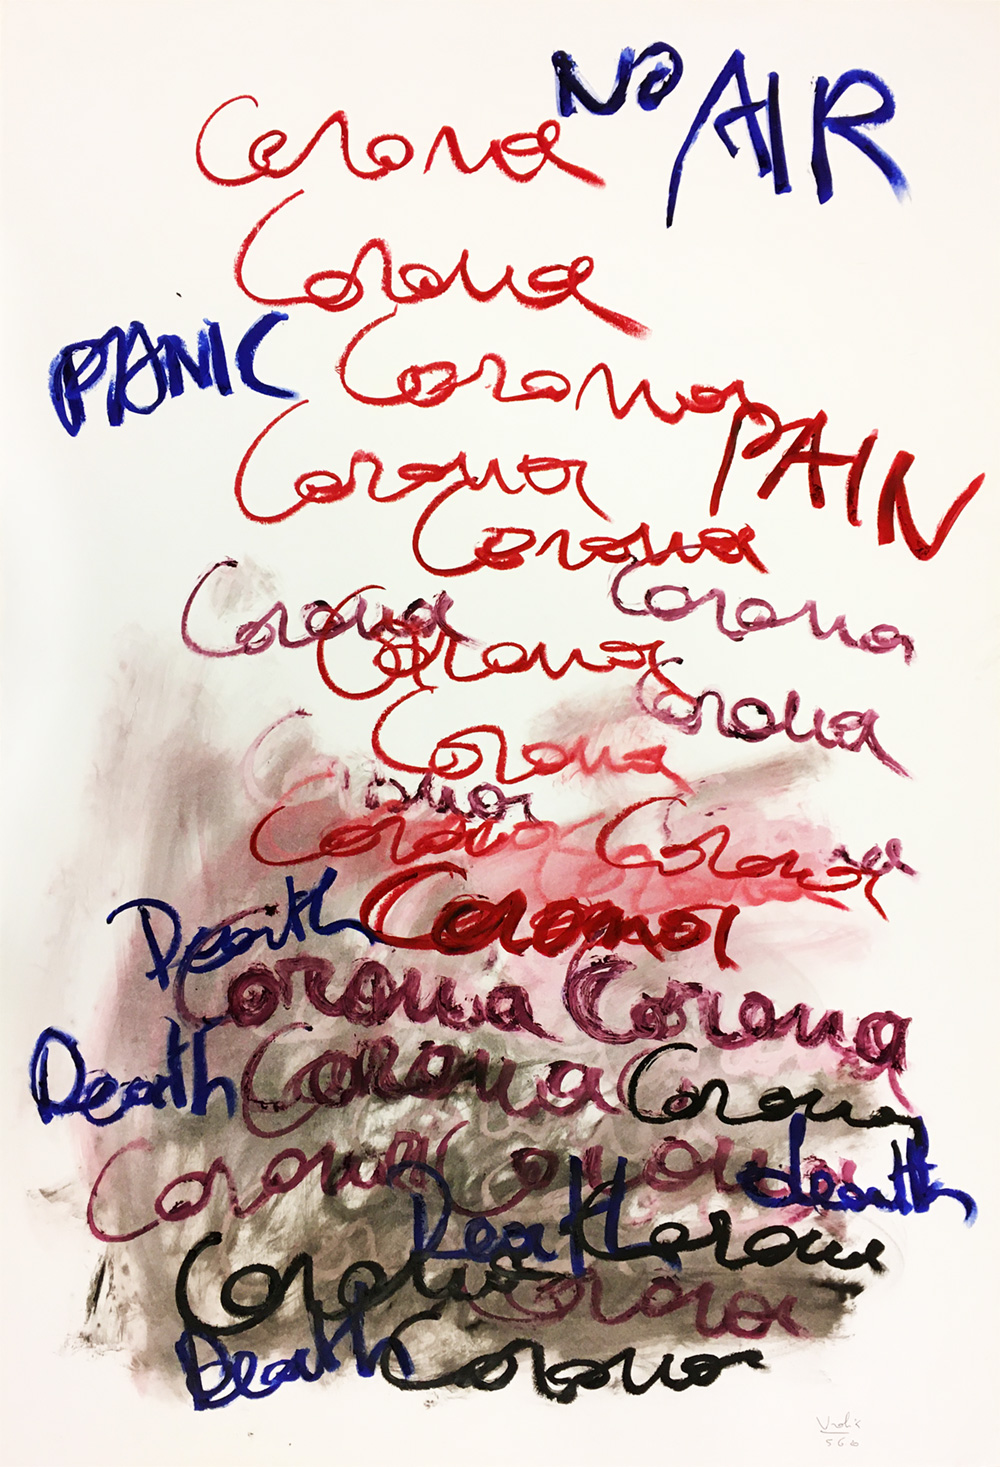 NO AIR
Corona
Corona
PANIC Corona
PAIN
Corona
Corona
Corona Corona
Corona
Corona
Corona
Corona
Corona Corona
Death Corona
Corona Corona
Death Corona Corona
Corona Corona death
Death Corona
Corona Corona
Death Corona